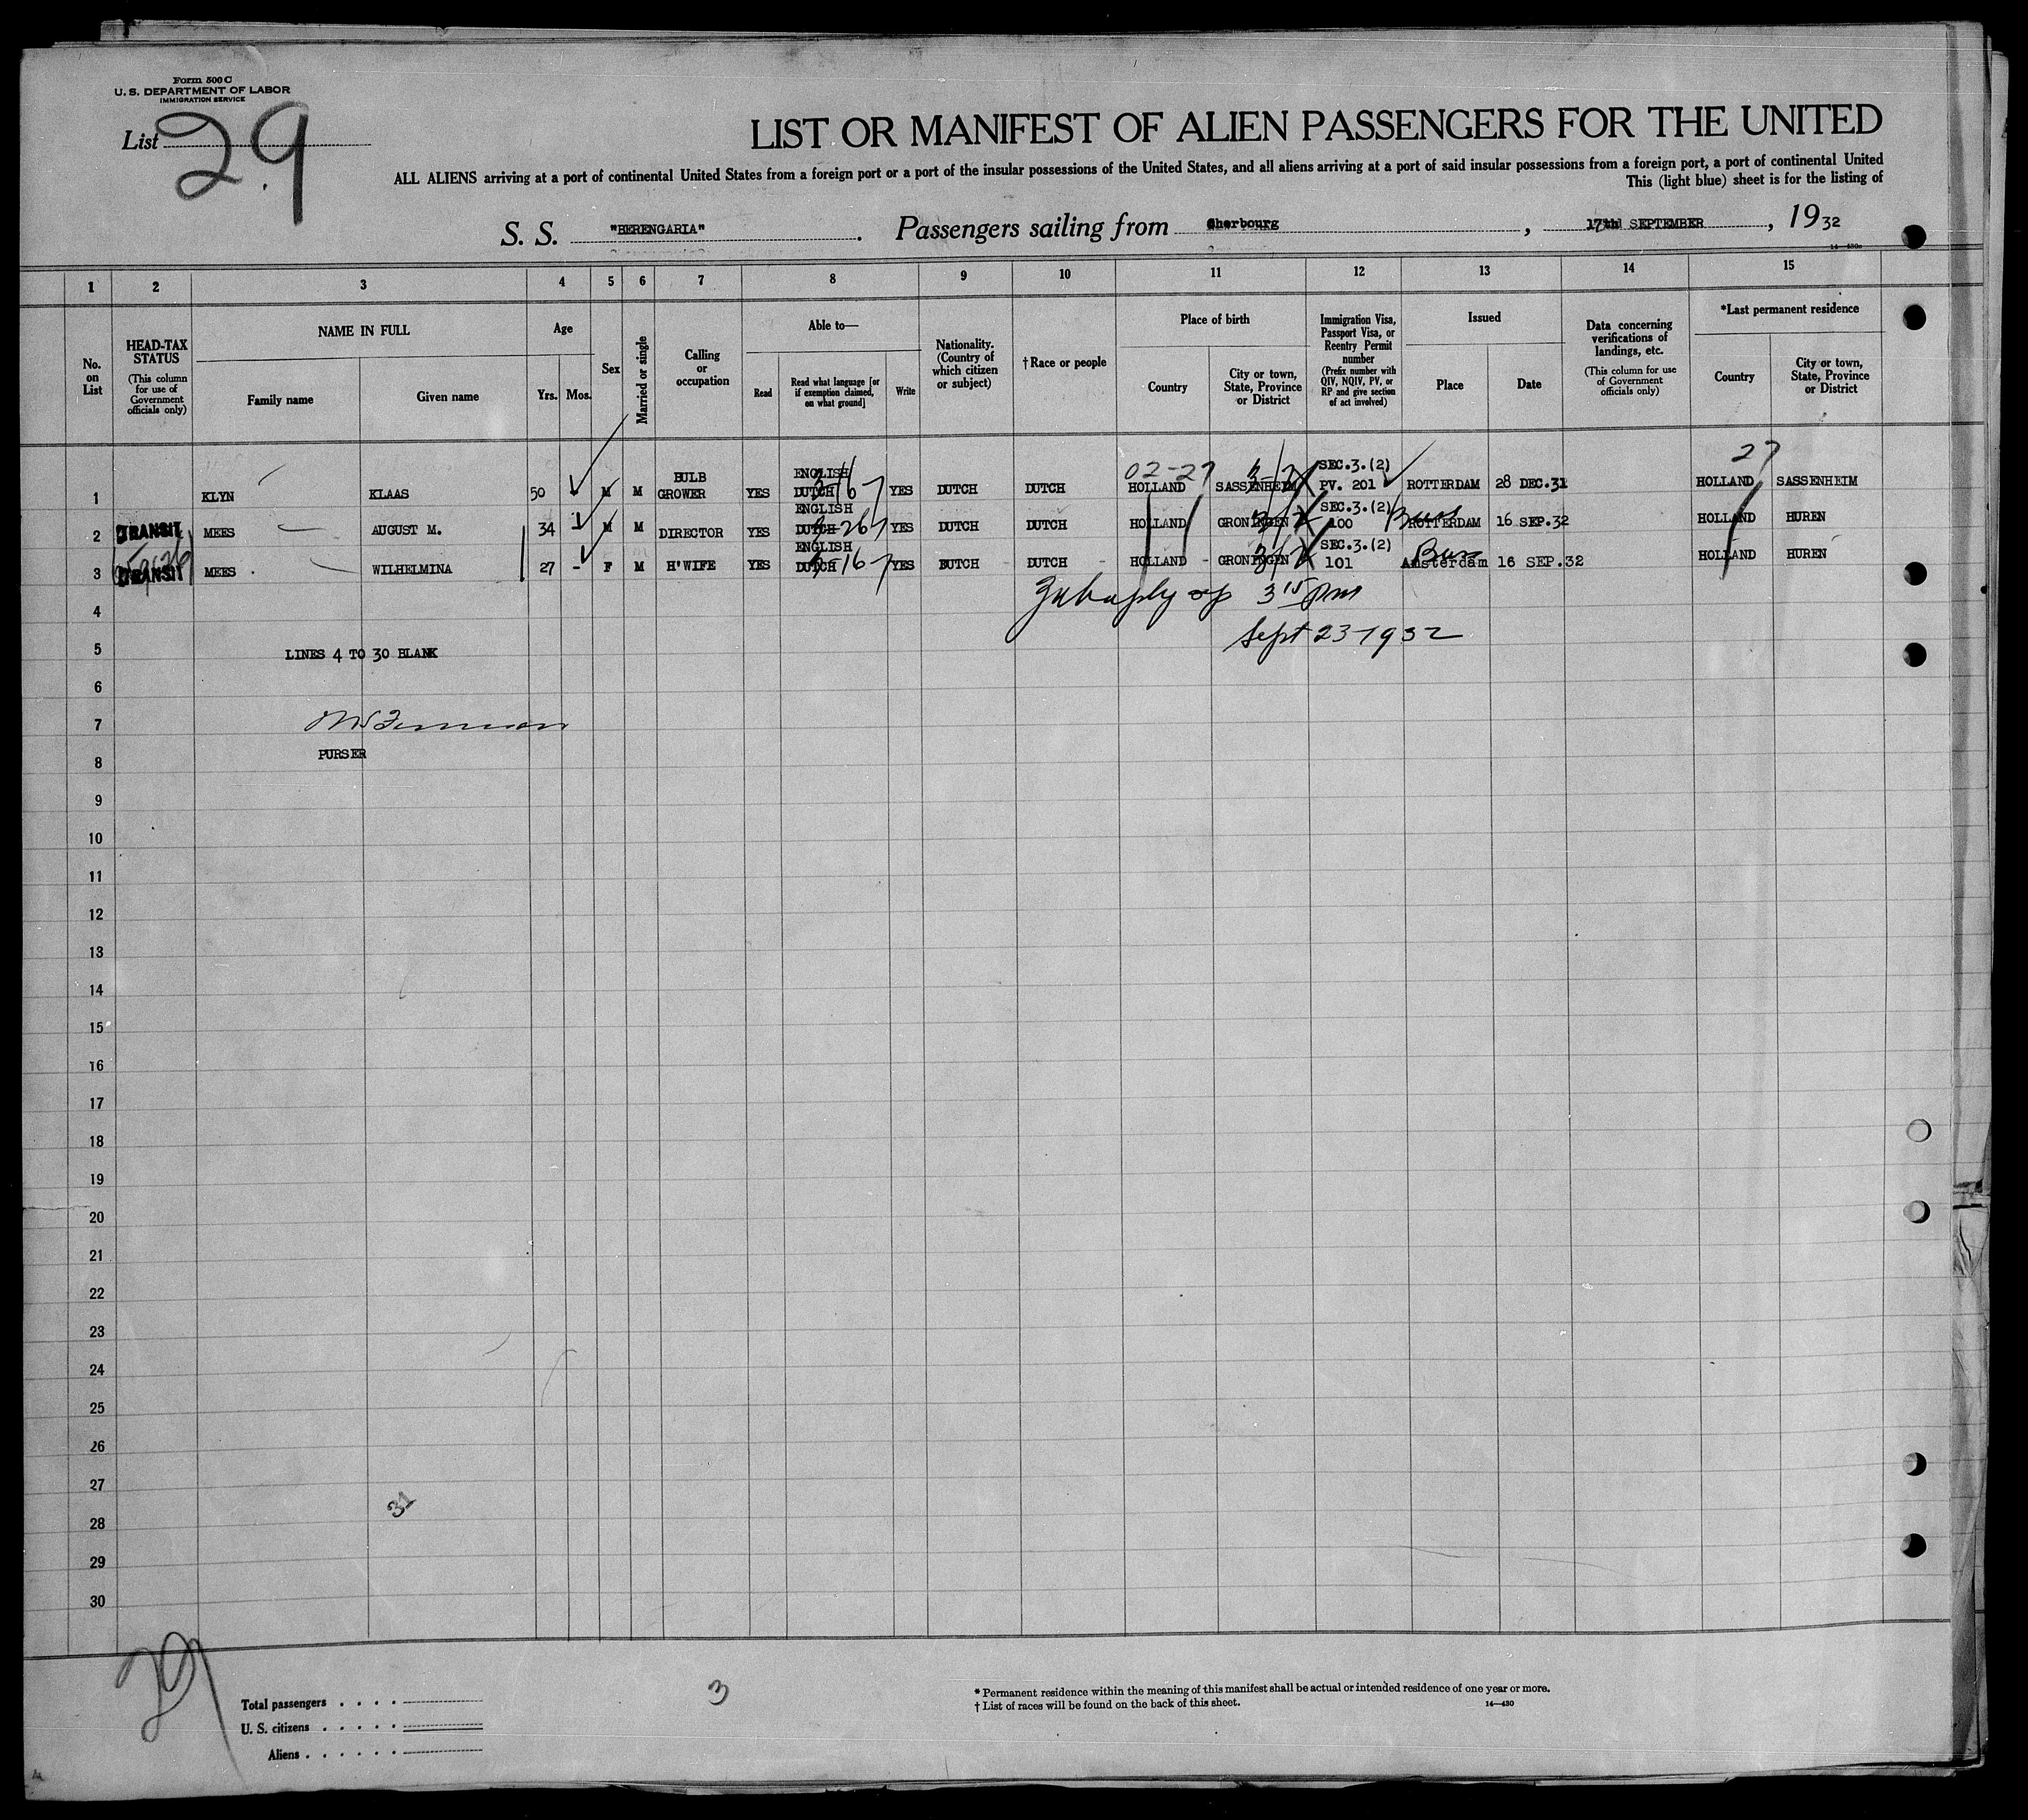 Form 500 C
U. S. DEPARTMENT OF LABOR
IMMIGRATION SERVICE
List 29
LIST OR MANIFEST OF ALIEN PASSENGERS FOR THE UNITED
ALL ALIENS arriving at a port of continental United States from a foreign port or a port of the insular possessions of the United States, and all aliens arriving at a port of said insular possessions from a foreign port, a port of continental United
This (light blue) sheet is for the listing of
S. S. "BERENGARIA". Passengers sailing from Cherbourg, 17th SEPTEMBER, 1932
14—430c
1 2 3 4 5 6 7 8 9 10 11 12 13 14 15
No. on List
HEAD-TAX STATUS
(This column for use of Government officials only)
NAME IN FULL
Family name Given name
Age
Yrs. Mos.
Sex
Married or single
Calling or occupation
Able to—
Read
Read what language [or if exemption claimed, on what ground]
Write
Nationality. (Country of which citizen or subject)
†Race or people
Place of birth
Country
City or town, State, Province or District
Immigration Visa, Passport Visa, or Reentry Permit number
(Prefix number with QIV, NQIV, PV, or RP and give section of act involved)
Issued
Place Date
Data concerning verifications of landings, etc.
(This column for use of Government officials only)
*Last permanent residence
Country
City or town, State, Province or District
02-27 27
1 KLYN KLAAS 50 - M M BULB GROWER YES ENGLISH DUTCH YES DUTCH DUTCH HOLLAND SASSENHEIM SEC.3.(2) PV. 201 ROTTERDAM 28 DEC.31 HOLLAND SASSENHEIM
2 TRANSIT MEES AUGUST M. 34 - M M DIRECTOR YES ENGLISH DUTCH YES DUTCH DUTCH HOLLAND GRONINGEN SEC.3.(2) 100 ROTTERDAM 16 SEP.32 HOLLAND HUREN
3 TRANSIT MEES WILHELMINA 27 - F M H'WIFE YES ENGLISH DUTCH YES DUTCH DUTCH HOLLAND GRONINGEN SEC.3.(2) 101 Amsterdam 16 SEP.32 HOLLAND HUREN
4 3 15 pm
Sept 23-1932
5 LINES 4 TO 30 BLANK
6
7
PURSER
8
9
10
11
12
13
14
15
16
17
18
19
20
21
22
23
24
25
26
27
31
28
29
30
29
Total passengers
U. S. citizens
Aliens
3
* Permanent residence within the meaning of this manifest shall be actual or intended residence of one year or more.
† List of races will be found on the back of this sheet.
14—430